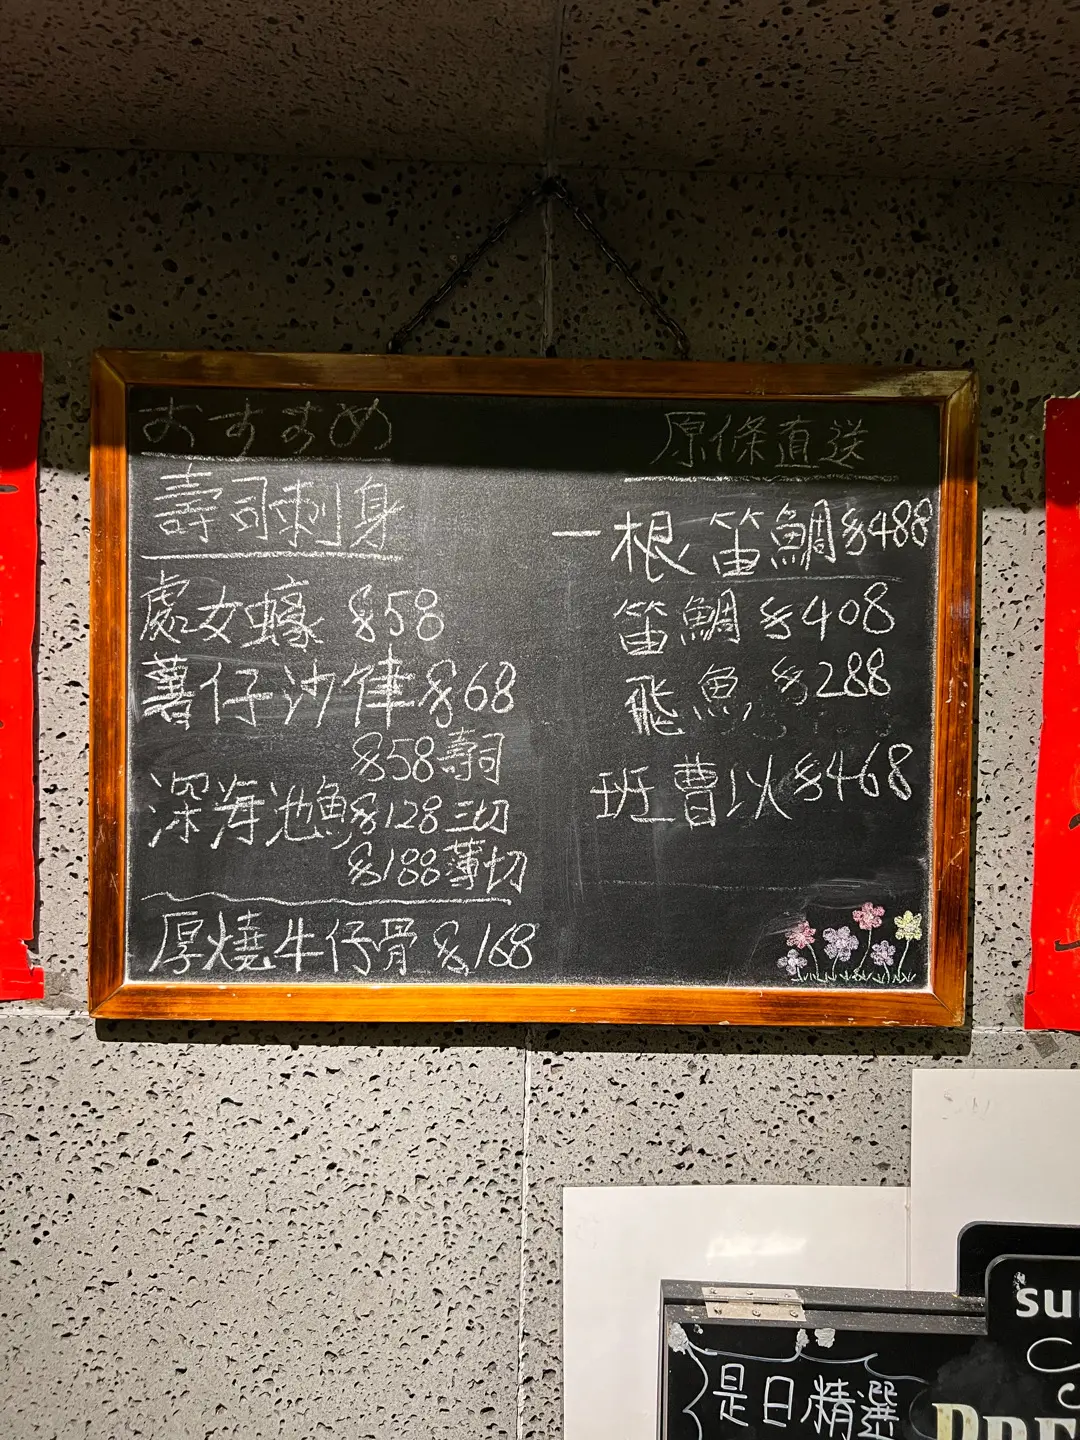 おすすめ
壽司刺身
處女蠔 $58
薯仔沙律 $68
$58壽司
深海池魚 $128三切
$188薄切
厚燒牛仔骨 $168
原條直送
一根笛鯛 $488
笛鯛 $408
飛魚 $288
班曹以 $468
su
是日精選